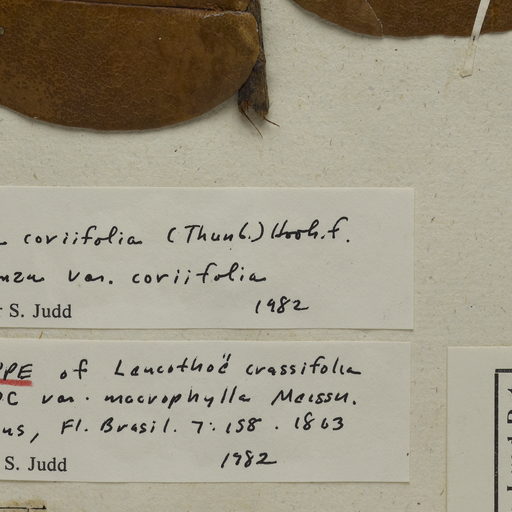 coriifolia (Thunb.) Hook.f.
var. coriifolia
S. Judd 1982
of Leucothoë crassifolia
DC var. macrophylla Meissn.
Fl. Brasil. 7: 158. 1863
S. Judd 1982